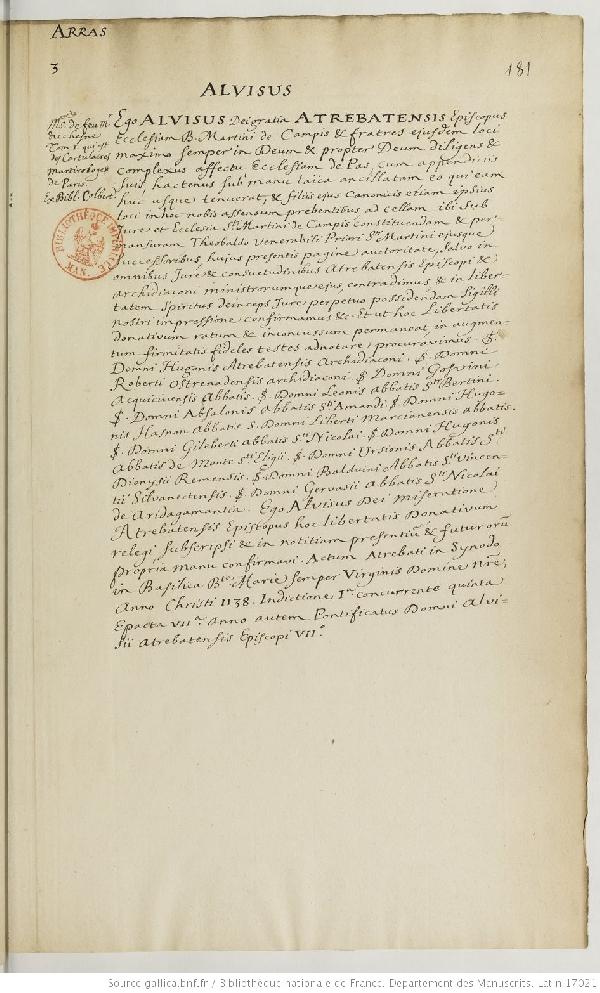 ARRAS
3
181
ALVISUS
Ms. de feu Mr
du chesne
Tom 1. qui est
des Cartulaires
Martirologes
de Paris
Ex Bibl. Colbert.
Ego ALVISUS Dei gratia ATREBATENSIS Episcopus
Ecclesiam B. Martini de Campis & fratres ejusdem loci
maximo semper in Deum & propter Deum diligens &
complexus affectu Ecclesiam de Pas, cum appendiciis
suis, hactenus sub manu laica ancillatam eo qui eam
huc usque tenuerat, & filiis ejus Canonicis etiam ipsius
loci in hoc nobis assensum prebentibus ad cellam ibi sub
Jure et Ecclesia Sti Martini de Campis constituendam & per
mansuram Theobaldo venerabili Priori Sti Martini ejusque
successoribus, hujus presentis pagine auctoritate, salvo in
omnibus Jure & consuetudinibus Atrebatensis Episcopi &
archidiaconi ministrorumque ejus, contradimus & in liber-
tatem spiritus deinceps Jure perpetuo possidendam sigilli
nostri impressione confirmamus &. Et ut hoc Libertatis
donativum ratum & inconcussum permaneat, in augmen-
tum firmitatis fideles testes adnotare procuravimus. S.
Domni Hugonis Atrebatensis Archidiaconi, S. Domni
Roberti Ostrenadensis archidiaconi S. Domni Gosuini
Aquicinensis Abbatis. S. Domni Leonis Abbatis Sti Bertini.
S. Domni Absalonis Abbatis Sti Amandi S. Domni Hugo-
nis Hasnon. Abbatis S. Domni Liberti Marcianensis abbatis.
S. Domni Gileberti abbatis Sti Nicolai S. Domni Hugonis
Abbatis de Monte Sti Eligii. S. Domni Ursionis Abbatis Sti
Dionysii Remensis. S. Domni Balduini Abbatis Sti Vincen-
tii Silvanectensis. S. Domni Gervasii Abbatis Sti Nicolai
de Aridagamantia. Ego Alvisus Dei miseratione
Atrebatensis Episcopus hoc libertatis Donativum
relegi subscripsi & in notitiam presentiũ & futurorũ
propria manu confirmavi. Actum Atrebati in Synodo
in Basilica Bte Marie semper Virginis Domine nre,
Anno Christi 1138. Indictione Ia concurrente quinta
Epacta VIIa. Anno autem Pontificatus Domni Alvi-
sii Atrebatensis Episcopi VIIo.
BIBLIOTHÈQUE IMPÉRIALE MAN.
Source gallica.bnf.fr / Bibliothèque nationale de France. Département des Manuscrits. Latin 17021